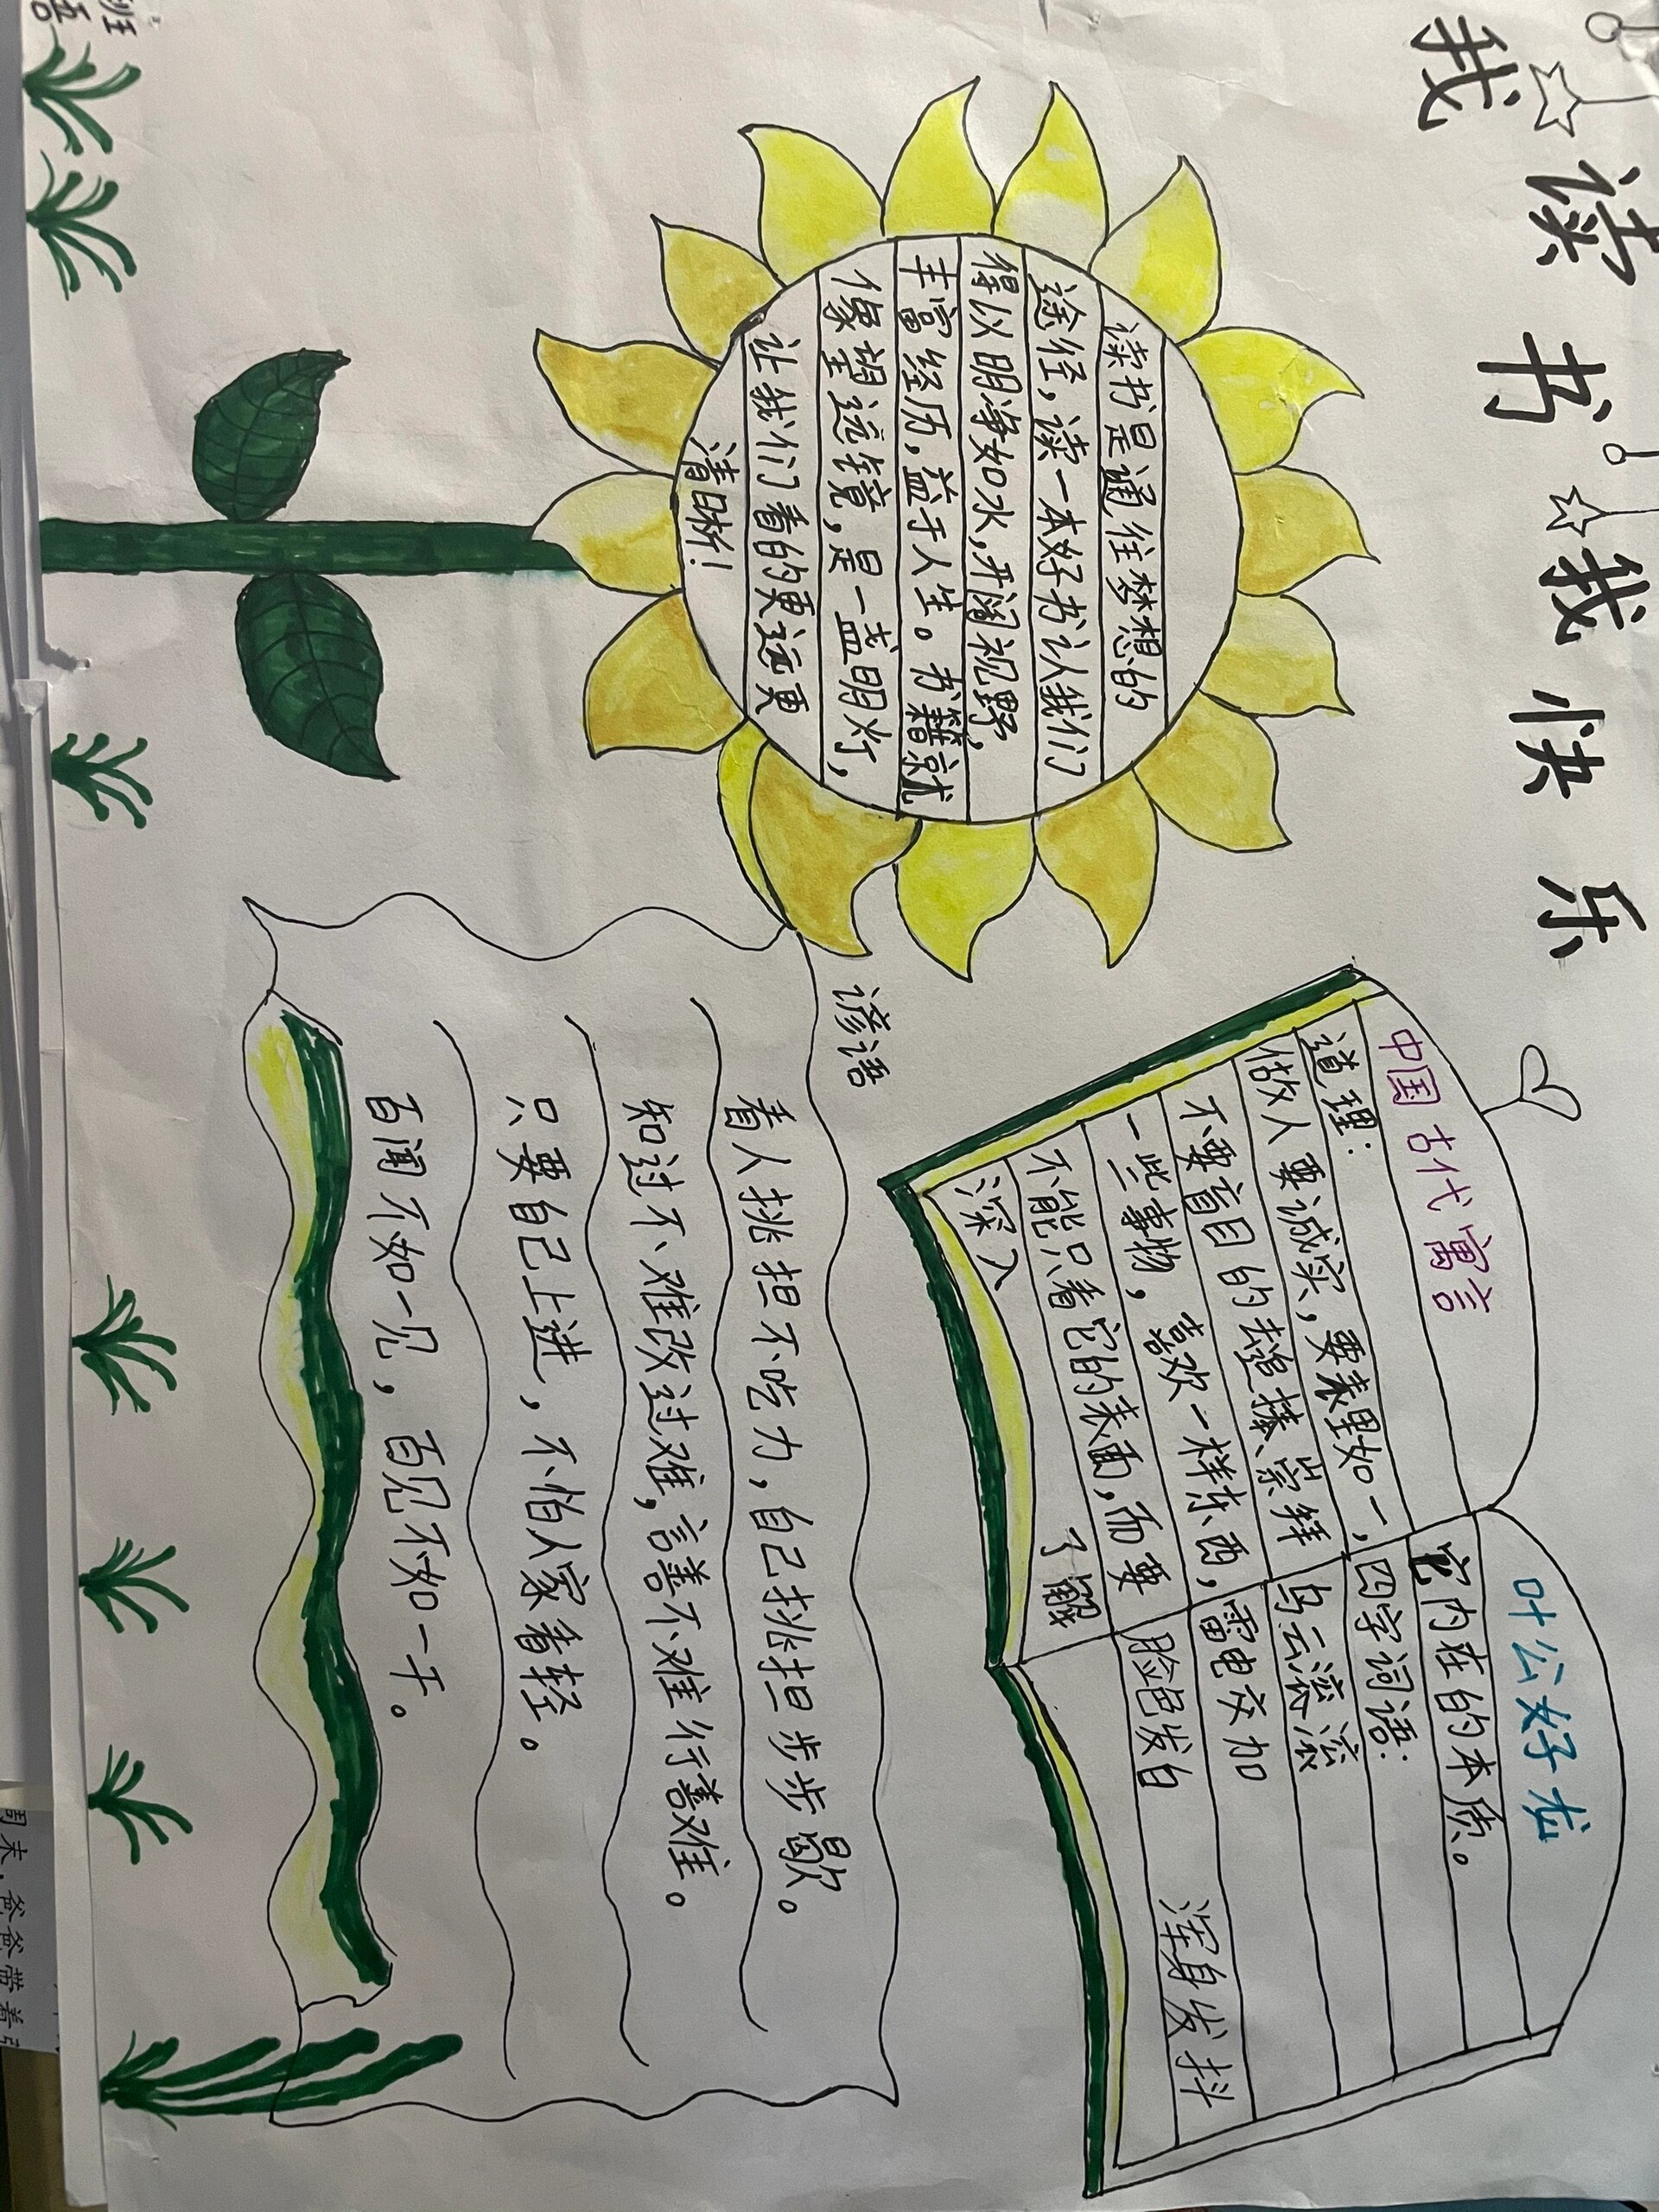 我读书我快乐
读书是通往梦想的
途径,读一本好书认我们
得以明净如水,开阔视野,
丰富经历,益于人生。书籍就
像望远镜,是一盏明灯,
让我们看的更远更
清晰!
中国古代寓言
道理:
做人要诚实,要表里如一,
不要盲目的去追捧、崇拜
一些事物,喜欢一样东西,
不能只看它的表面,而要
深入 了解
叶公好龙
它内在的本质。
四字词语:
乌云滚滚
雷电交加
脸色发白 浑身发抖
谚语
看人挑担不吃力,自己挑担步步歇。
知过不难改过难,言善不难行善难。
只要自己上进,不怕人家看轻。
百闻不如一见,百见不如一干。
班
周末,爸爸带着